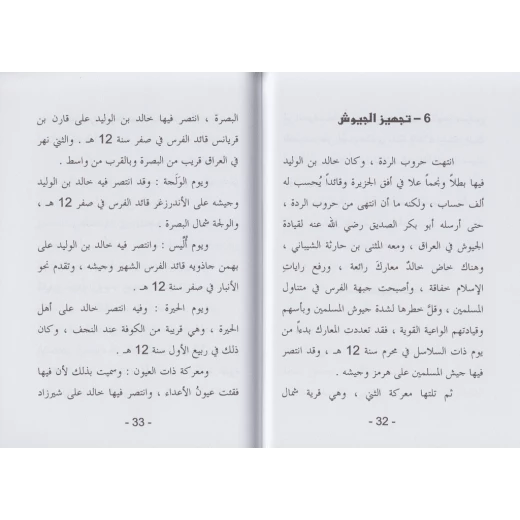 6 – تجهيز الجيوش
انتهت حروب الردة ، وكان خالد بن الوليد
فيها بطلاً ونجماً علا في أفق الجزيرة وقائداً يُحسب له
ألف حساب ، ولكنه ما أن انتهى من حروب الردة ،
حتى أرسله أبو بكر الصديق رضي الله عنه لقيادة
الجيوش في العراق ، ومعه المثنى بن حارثة الشيباني ،
وهناك خاض خالدٌ معاركَ رائعة ، ورفع راياتِ
الإسلام خفاقة ، وأصبحت جبهة الفرس في متناول
المسلمين ، وقلَّ خطرها لشدة جيوش المسلمين وبأسهم
وقيادتهم الواعية القوية ، فقد تعددت المعارك بدءاً من
يوم ذات السلاسل في محرم سنة 12 هـ ، وقد انتصر
فيها جيش المسلمين على هرمز وجيشه .
ثم تلتها معركة الثني ، وهي قرية شمال
- 32 -
البصرة ، انتصر فيها خالد بن الوليد على قارن بن
قريانس قائد الفرس في صفر سنة 12 هـ . والثني نهر
في العراق قريب من البصرة وبالقرب من واسط .
ويوم الوَلَجة : وقد انتصر فيه خالد بن الوليد
وجيشه على الأندرزغر قائد الفرس في صفر 12 هـ ،
والولجة شمال البصرة .
ويوم أُلَّيس : وانتصر فيه خالد بن الوليد على
بهمن جاذويه قائد الفرس الشهير وجيشه ، وتقدم نحو
الأنبار في صفر سنة 12 هـ .
ويوم الحيرة : وفيه انتصر خالد على أهل
الحيرة ، وهي قريبة من الكوفة عند النجف ، وكان
ذلك في ربيع الأول سنة 12 هـ .
ومعركة ذات العيون : وسميت بذلك لأن فيها
فقئت عيونُ الأعداء ، وانتصر فيها خالد على شيرزاد
- 33 -